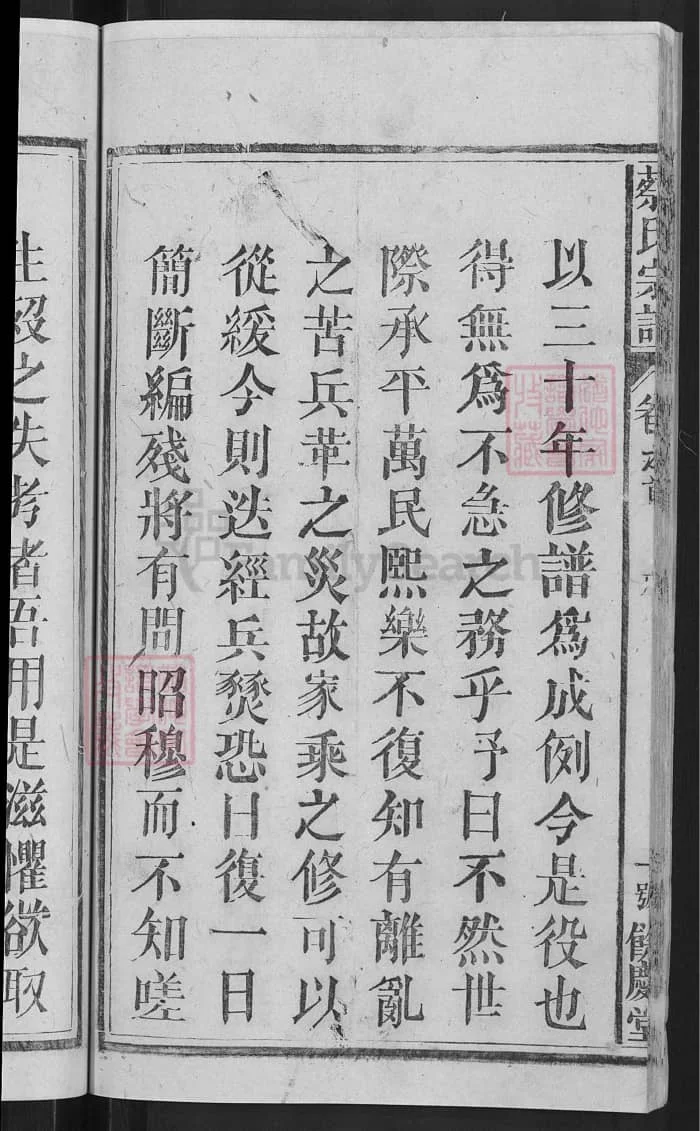 蔡氏宗譜
卷之首
一號 餘慶堂
以三十年修譜爲成例今是役也
得無爲不急之務乎予曰不然世
際承平萬民熙樂不復知有離亂
之苦兵革之災故家乘之修可以
從緩今則迭經兵燹恐日復一日
簡斷編殘將有問昭穆而不知嗟
生殁之失考者吾用是滋懼欲取
FamilySearch